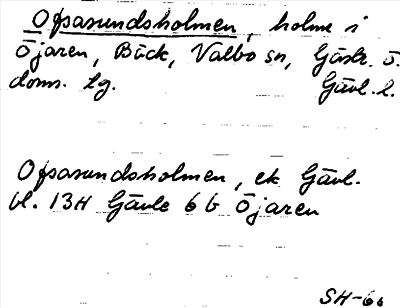 Opsasundsholmen, holme i
Öjaren, Bäck, Valbo sn, Gästr. ö.
doms. lg. Gävl. l.
Opsasundsholmen, ek Gävl.
bl. 13H Gävle 6 b Öjaren
SH-66